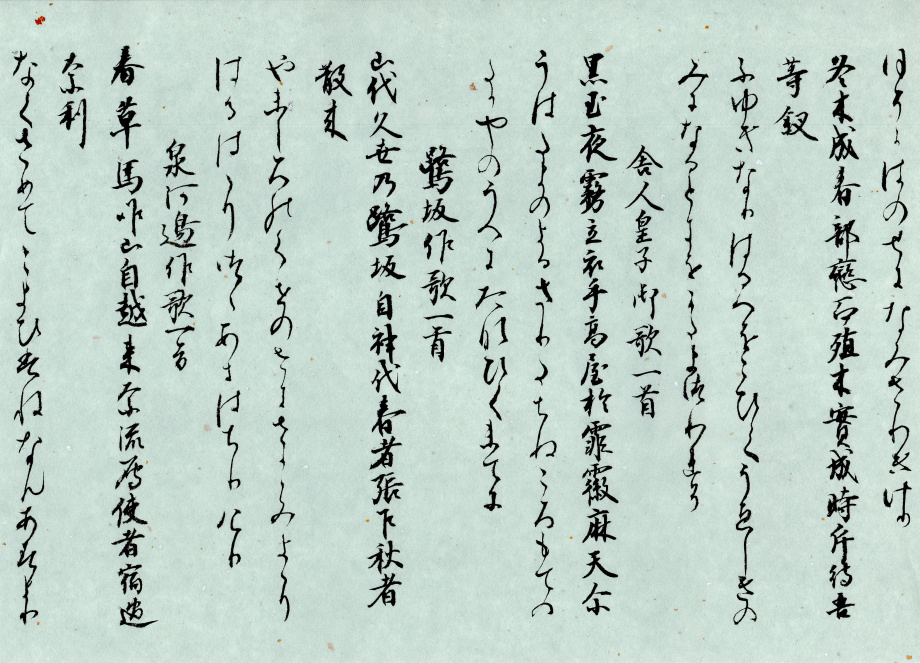 ほそかはのせになみさわきけり
冬木成春部戀而殖木實成時片待吾
等叙
ふゆきなりはるへをこひてうゑしきの
みになるときをかたまつわれそ
舎人皇子御歌一首
黒玉夜霧立衣手高屋於霏霺麻天尓
うはたまのよるきりたちぬころもての
たかやのうへにたなひくまてに
鷺坂作歌一首
山代久世乃鷺坂自神代春者張乍秋者
散来
やましろのくせのさきさかかみよより
はるははりつゝあきはちりけり
泉河邊作歌一首
春草馬咋山自越来奈流鴈使者宿過
奈利
なくさめてこよひはねなんあすよりは